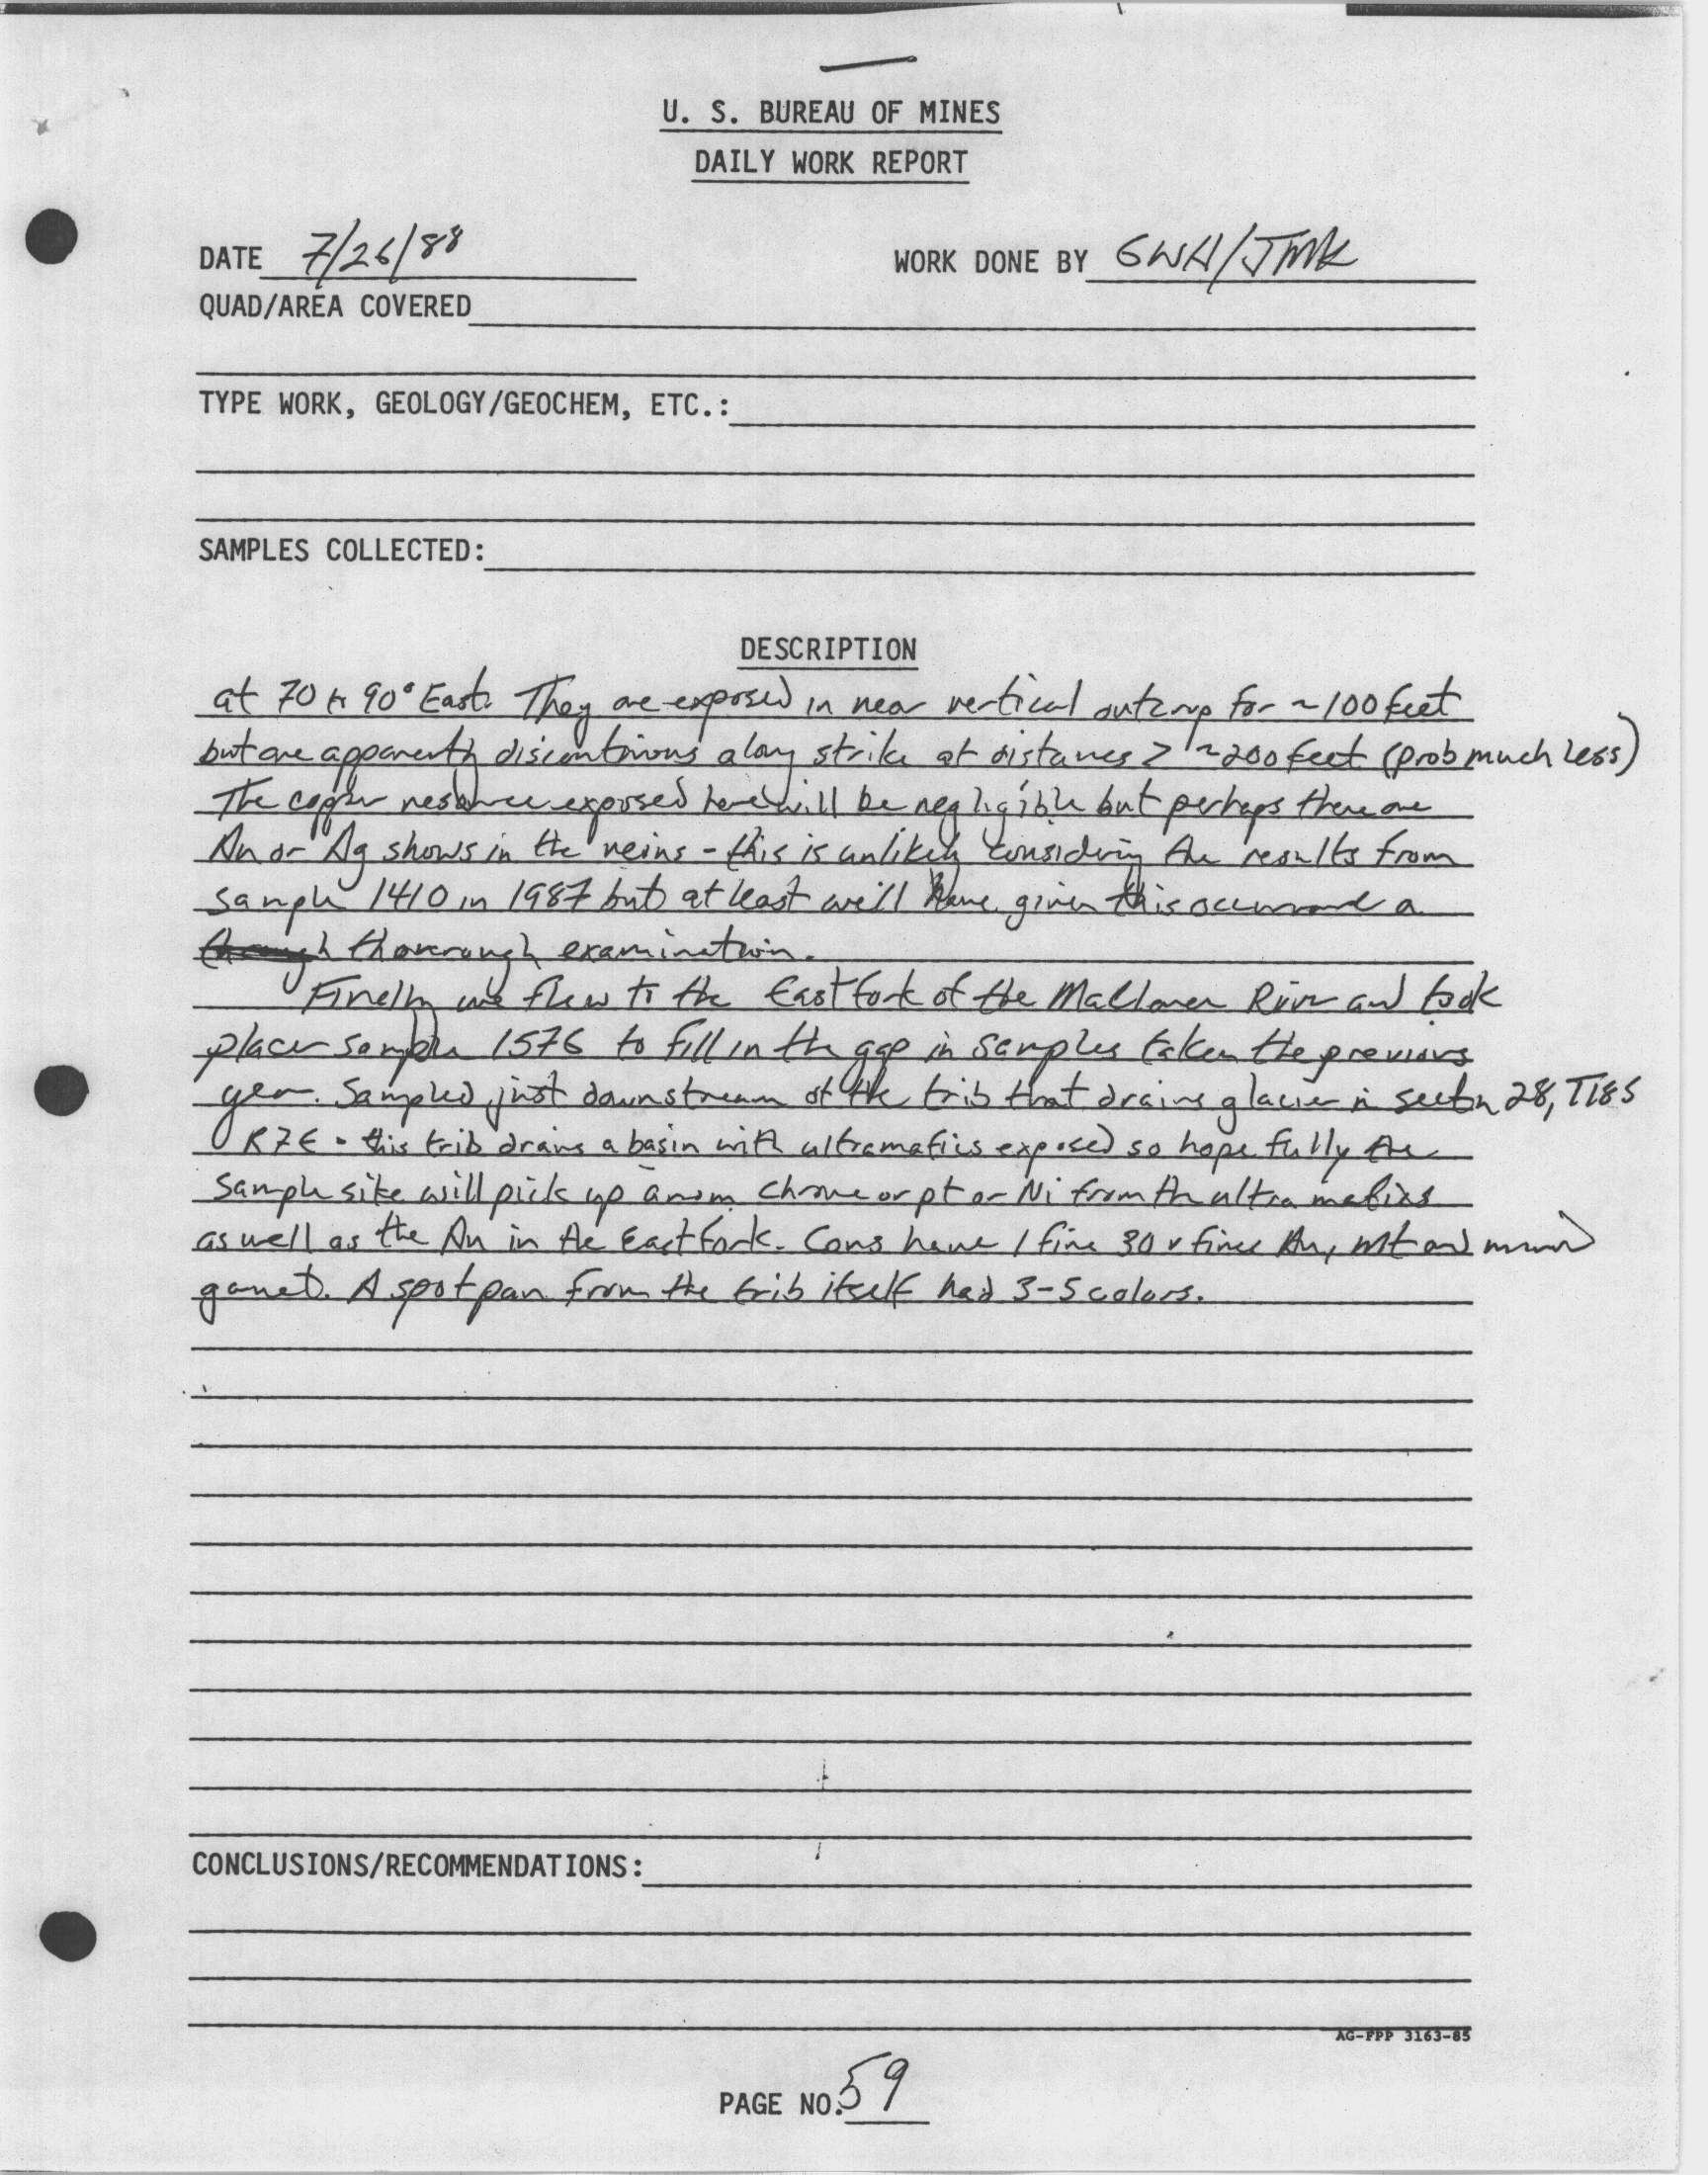 U. S. BUREAU OF MINES
DAILY WORK REPORT
DATE 7/26/88 WORK DONE BY GWH/JMK
QUAD/AREA COVERED
TYPE WORK, GEOLOGY/GEOCHEM, ETC.:
SAMPLES COLLECTED:
DESCRIPTION
at 70 to 90° East. They are exposed in near vertical outcrop for ~100 feet
but are apparently discontinuous along strike at distances > ~200 feet (prob much less)
The copper resource exposed here will be negligible but perhaps there are
Au or Ag shows in the veins - this is unlikely considering the results from
sample 1410 in 1987 but at least we'll have given this occurrence a
through thorough examination.
Finally we flew to the East fork of the Maclaren River and took
placer sample 1576 to fill in the gap in samples taken the previous
year. Sampled just downstream of the trib that drains glacier in section 28, T18S
R7E - this trib drains a basin with ultramafics exposed so hopefully the
sample site will pick up anom. chrome or pt or Ni from the ultramafics
as well as the Au in the East Fork. Cons have 1 fine 30 v fines Au, mt and minor
garnet. A spot pan from the trib itself had 3-5 colors.
CONCLUSIONS/RECOMMENDATIONS:
AG-FPP 3163-85
PAGE NO. 59